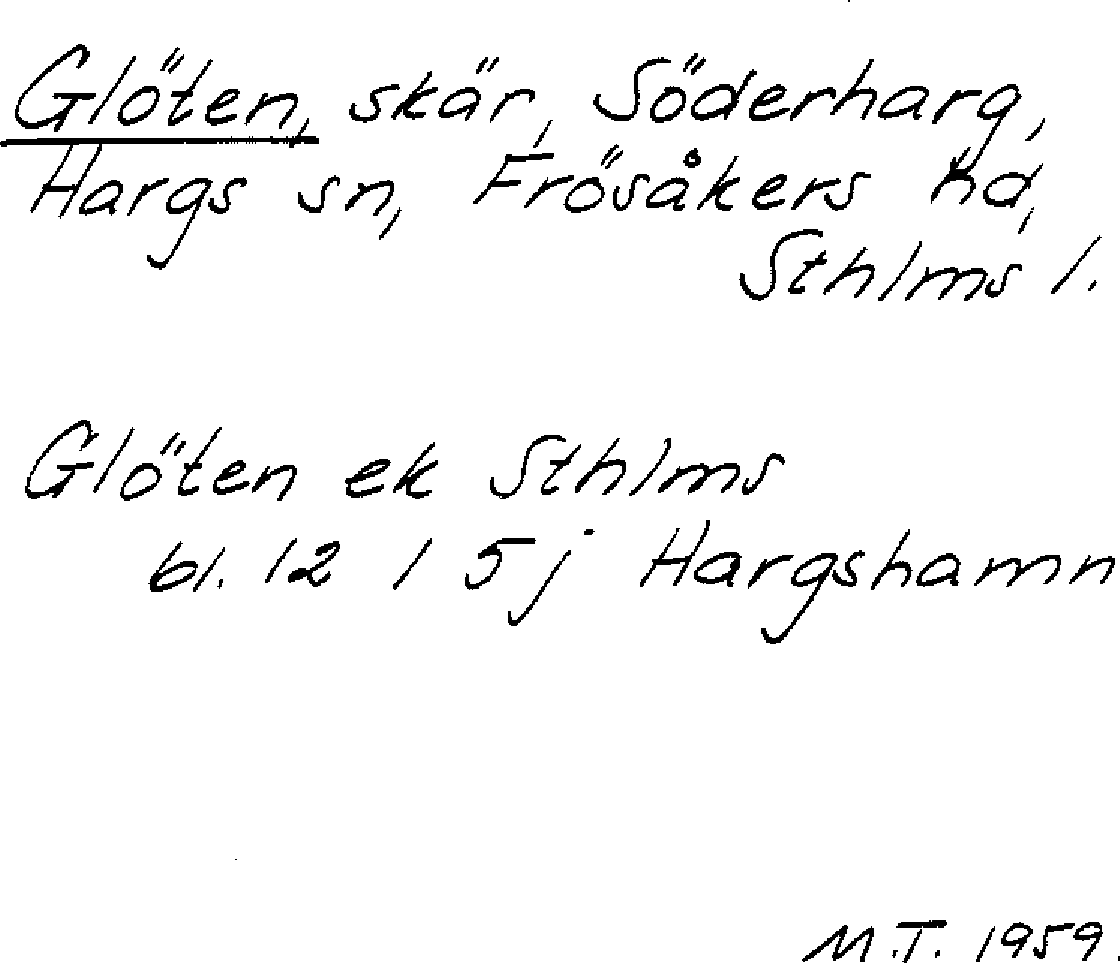 Glöten, skär, Söderharg,
Hargs sn, Frösåkers hd,
Sthlms l.
Glöten ek Sthlms
bl. 12 I 5j Hargshamn
M.T. 1959.